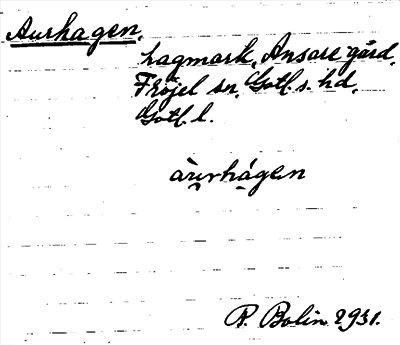 Aurhagen.
hagmark, Ansare gård,
Fröjel sn. Gotl. s. hd.
Gotl. l.
àu̯rhágen
R. Bolin 1931.